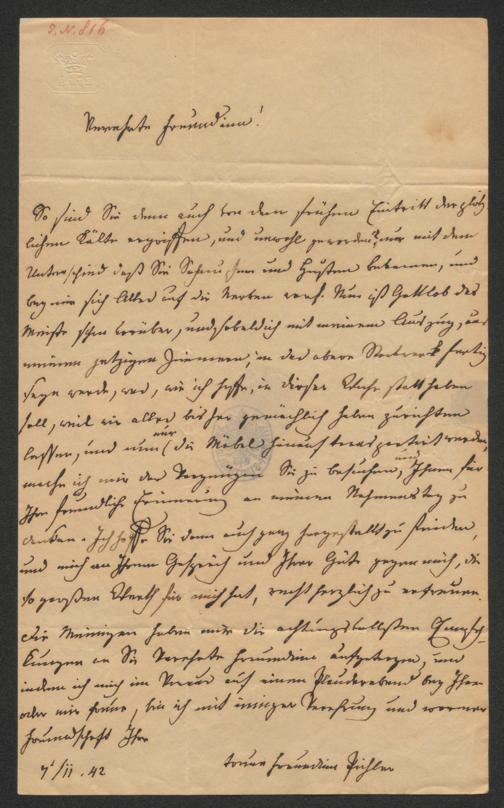 S. N. 816
Verehrte Freundinn!
So sind Sie denn auch von dem frühen Eintritt der plötz
lichen Kälte ergriffen, und unwohl geworden, nur mit dem
Unterschied daß Sie Schnupfen und Husten bekamen, und
bey mir sich Alles auf die Nerven warf. Nun ist Gottlob das
Meiste schon vorüber, und sobald ich mit meinem Auszug, aus
meinen jetzigen Zimmern, in das obere Stockwerk fertig
seyn werde, was, wie ich hoffe, in dieser Woche statt haben
soll, weil wir alles bisher gemächlich haben zurichten
lassen, und nun nur die Möbel hinauf transportirt werden,
mache ich mir das Vergnügen Sie zu besuchen, und Ihnen für
Ihre freundliche Erinnerung an meinen Nahmenstag zu
danken. Ich hoffe Sie denn auch ganz hergestellt zu finden,
und mich an Ihrem Gespräch und Ihrer Güte gegen mich, die
so großen Werth für mich hat, recht herzlich zu erfreuen.
Die Meinigen haben mir die achtungsvollsten Empfeh
lungen an Sie Verehrte Freundinn aufgetragen, und
indem ich mich im Voraus auf einen Plauderabend bey Ihnen
oder mir freue, bin ich mit inniger Verehrung und warmer
Freundschaft Ihre
/11. 42
treue Freundinn Pichler